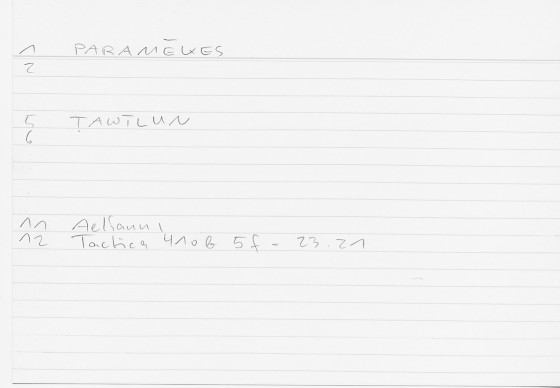 1 PARAMĒKES
2
5 ṬAWĪLUN
6
11 Aeliani
12 Tactica 410b 5f - 23.21